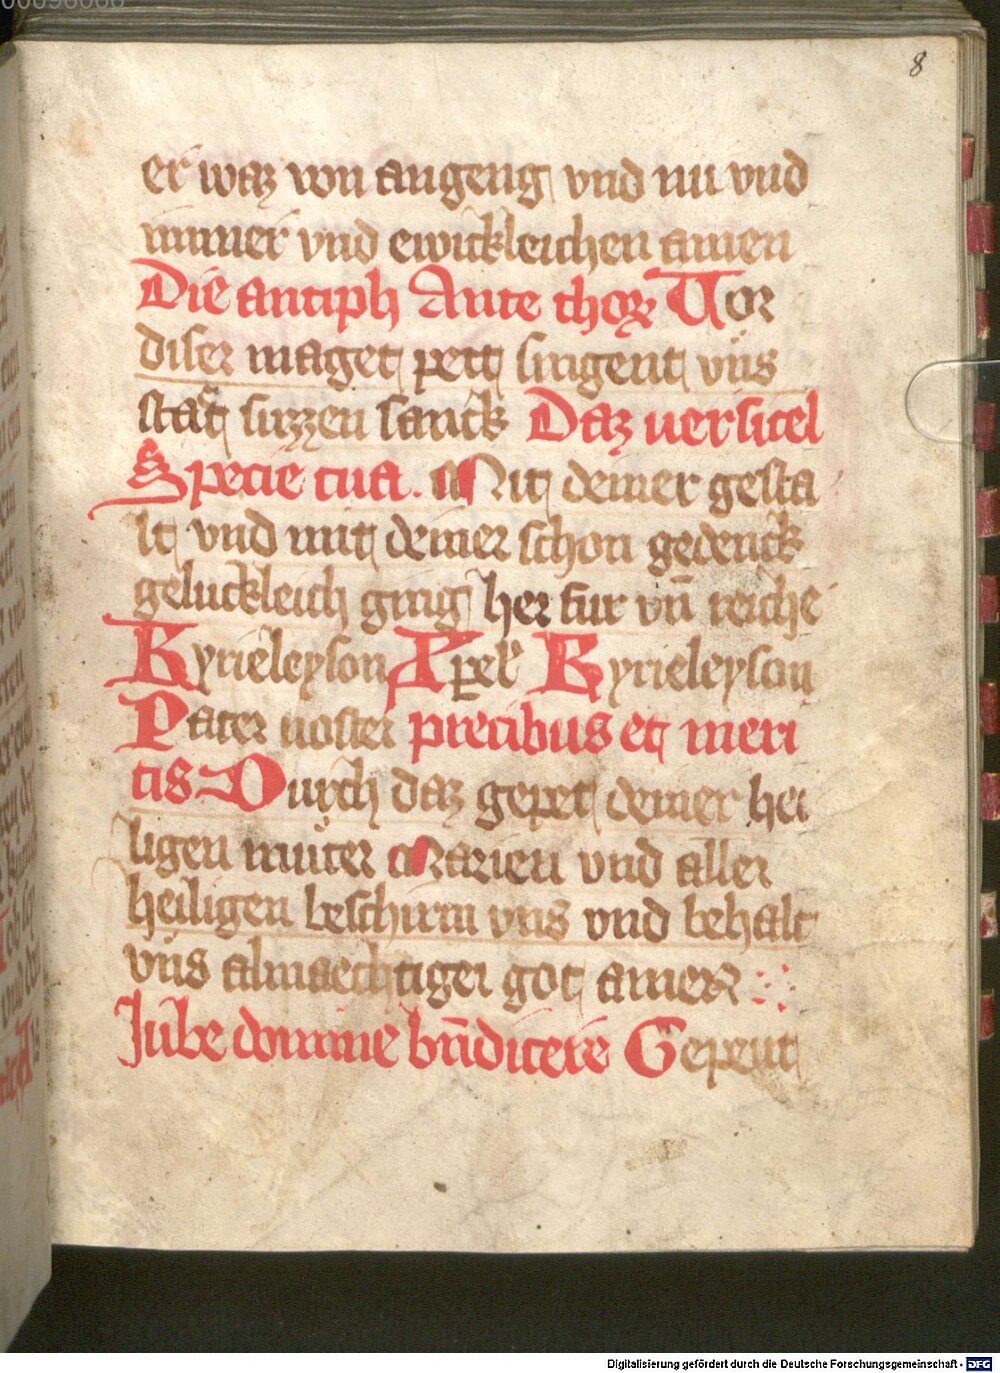 8
er waz von angeng vnd nu vnd
immer vnd ewickleichen amen
Die antiph Ante thorꝫ Vor
diser maget pett singent vns
stat suzzen sanck Daz uersicel
Specie tua. Mit deiner gesta
lt vnd mit deiner schon gedenck
geluckleich ging her fur vn̄ reiche
Kyrieleyson Xpel Kyrieleyson
Pater noster precibus et meri
tis Durch daz gepet deiner hei
ligen muter Marien vnd aller
heiligen beschirm vns vnd behalt
vns almaechtiger got amen
Jube domine bn̄dicere Gepeut
Digitalisierung gefördert durch die Deutsche Forschungsgemeinschaft - DFG